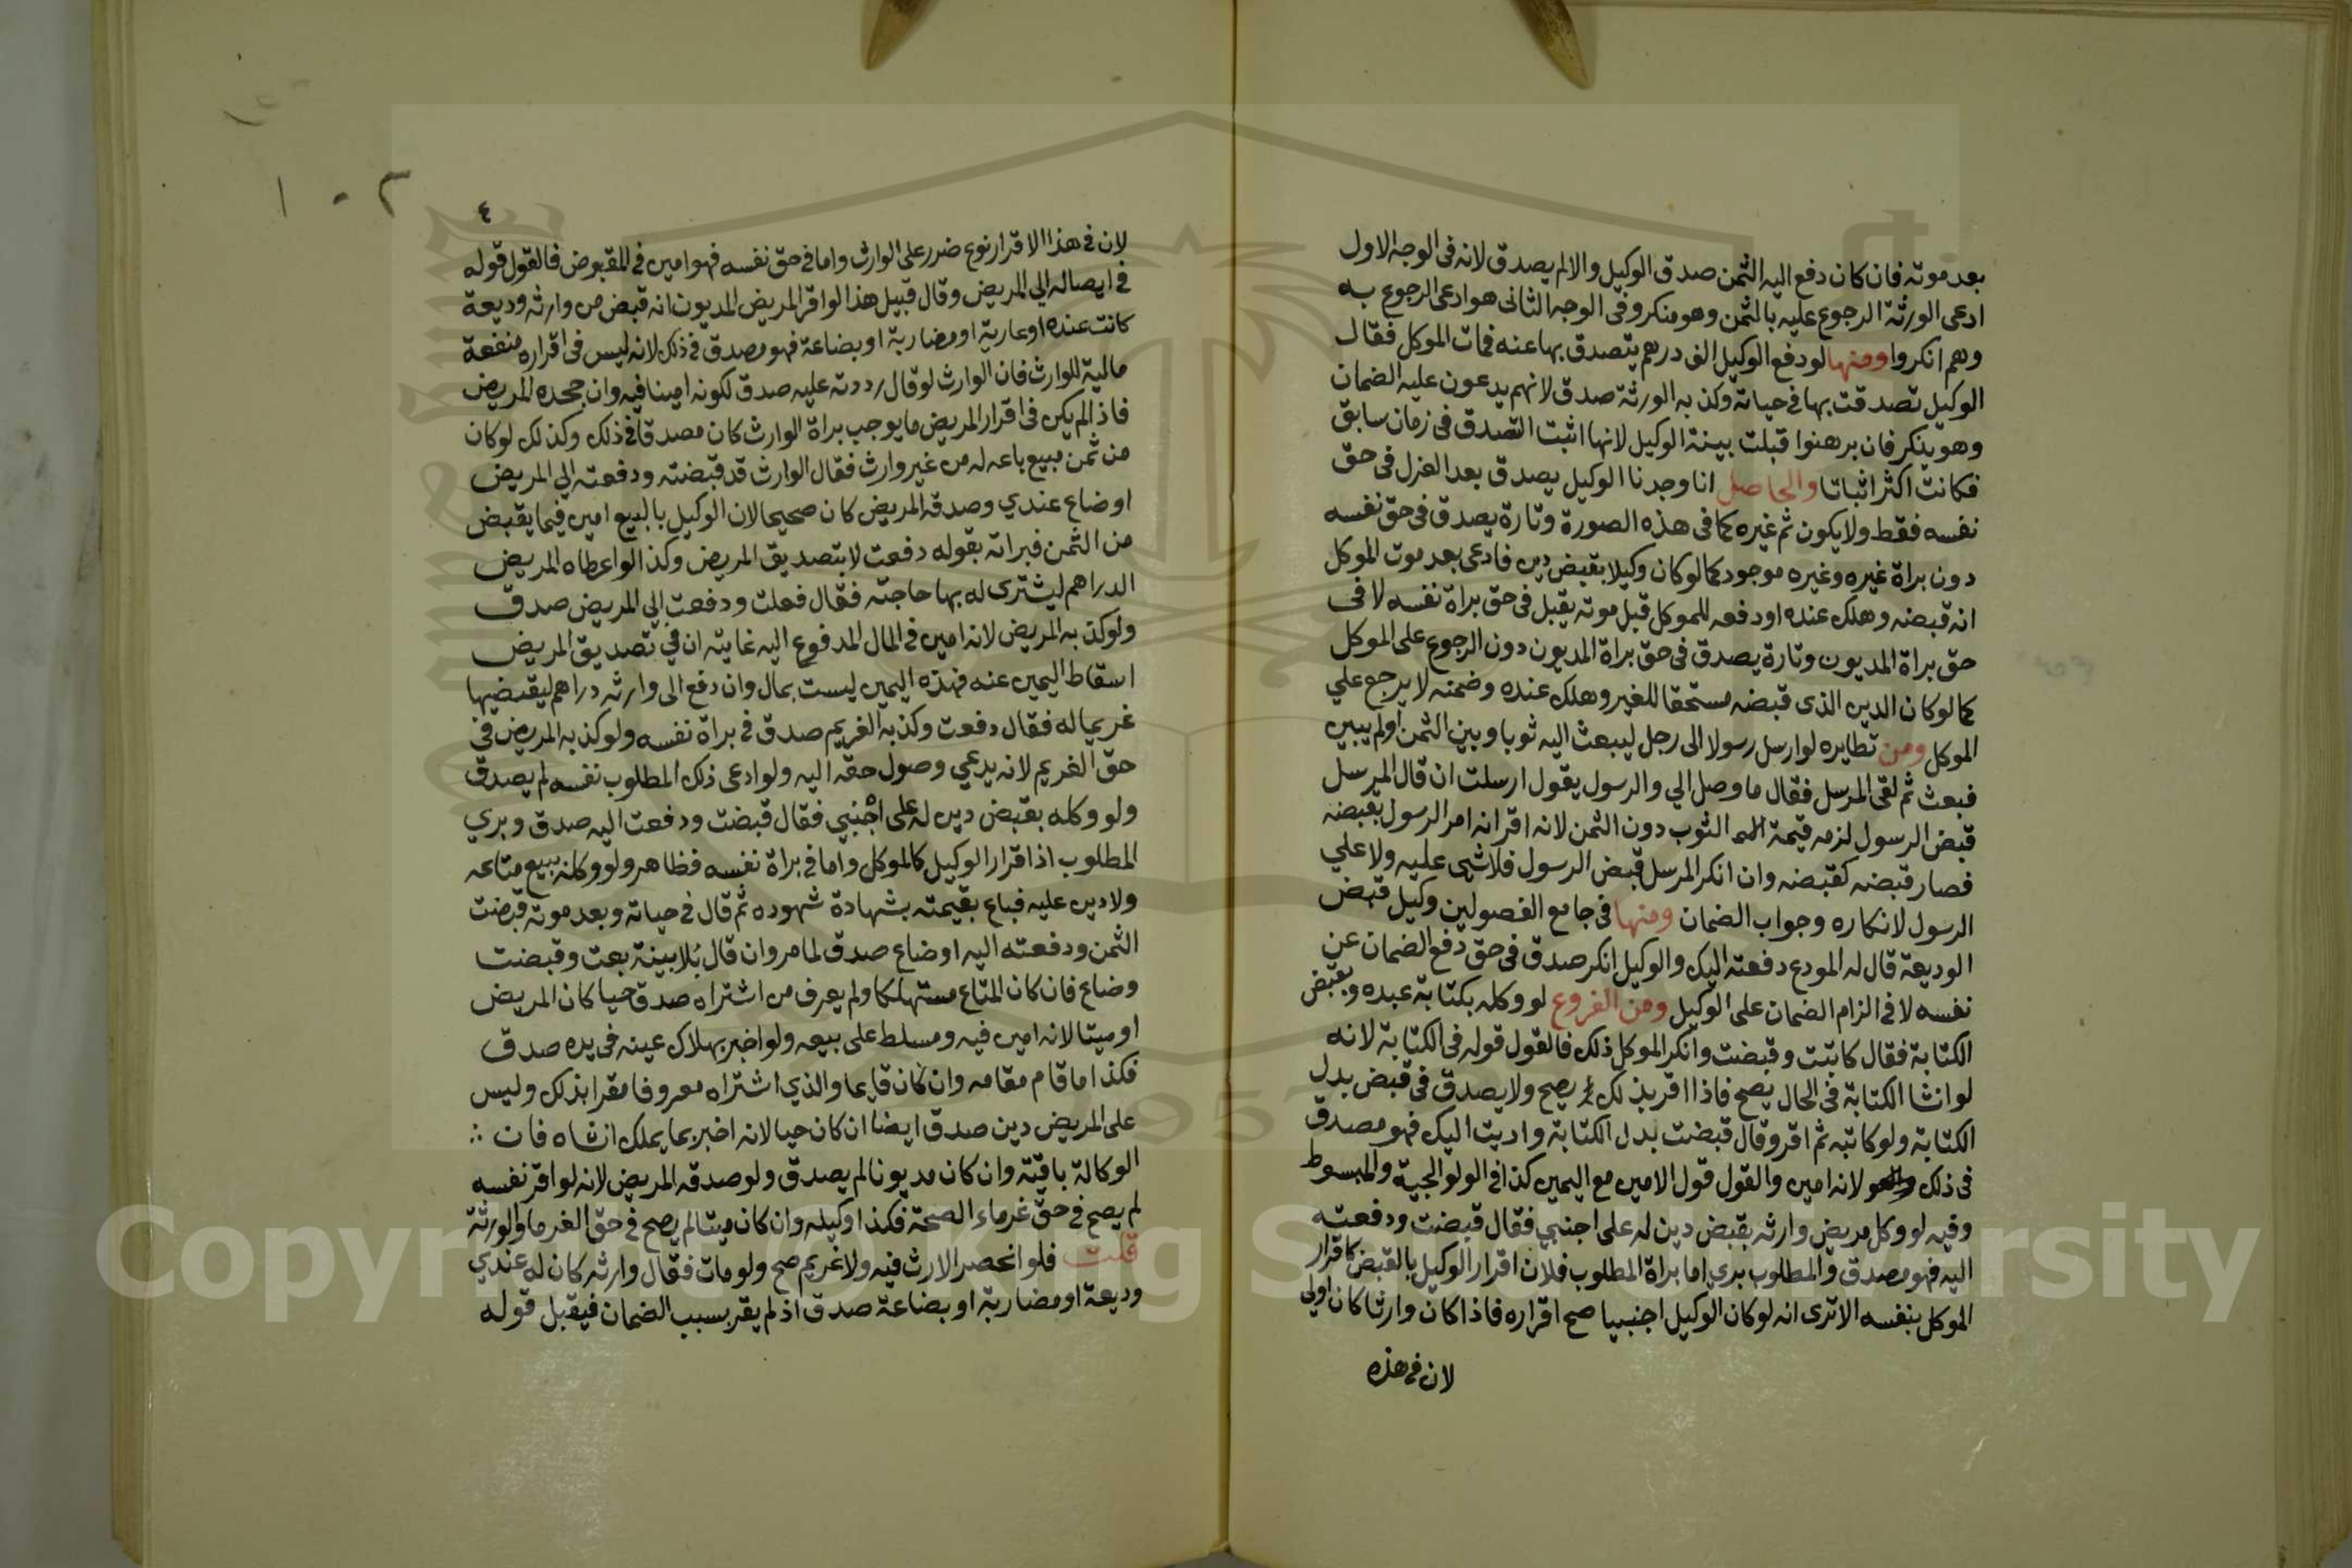 بعد موته فان كان دفع اليه الثمن صدق الوكيل والا لم يصدق لانه فى الوجه الاول
ادعى الورثة الرجوع عليه بالثمن وهو منكر وفى الوجه الثانى هو ادعى الرجوع به
وهم انكروا ومنها لو دفع الوكيل الفى درهم يتصدق بها عنه فمات الموكل فقال
الوكيل تصدقت بها فى حياته وكذبه الورثة صدق لانهم يدعون عليه الضمان
وهو ينكر فان برهنوا قبلت بينة الوكيل لانها اثبت التصدق فى زمان سابق
فكانت اكثر اثباتا والحاصل انا وجدنا الوكيل يصدق بعد العزل فى حق
نفسه فقط ولا يكون ثم غيره كما فى هذه الصورة وتارة يصدق فى حق نفسه
دون براة غيره وغيره موجود كما لو كان وكيلا بقبض دين فادعى بعد موت الموكل
انه قبضه وهلك عنده او دفعه للموكل قبل موته يقبل فى حق براة نفسه لا فى
حق براة المديون وتارة يصدق فى حق براة المديون دون الرجوع على الموكل
كما لو كان الدين الذى قبضه مستحقا للغير وهلك عنده وضمنه لا يرجع علي
الموكل ومن نظايره لو ارسل رسولا الى رجل ليبعث اليه ثوبا وبين الثمن اولم يبين
فبعث ثم لقى المرسل فقال ما وصل الي والرسول يقول ارسلت ان قال المرسل
قبض الرسول لزمه قيمة الثوب دون الثمن لانه اقر انه امر الرسول بقبضه
فصار قبضه كقبضه وان انكر المرسل قبض الرسول فلا شيى عليه ولا علي
الرسول لانكاره وجواب الضمان ومنها فى جامع الفصولين وكيل قبض
الوديعة قال له المودع دفعته اليك والوكيل انكر صدق فى حق دفع الضمان عن
نفسه لا فى الزام الضمان على الوكيل ومن الفروع لو وكله بكتابة عبده وبقبض
الكتابة فقال كاتبت وقبضت وانكر الموكل ذلك فالقول قوله فى الكتابة لانه
لو انشا الكتابة فى الحال يصح فاذا اقر بذلك يصح ولا يصدق فى قبض بدل
الكتابة ولو كاتبه ثم اقر وقال قبضت بدل الكتابة واديت اليك فهو مصدق
فى ذلك لانه امين والقول قول الامين مع اليمين كذا فى الولوالجية والمبسوط
وفيه لو وكل مريض وارثه بقبض دين له على اجنبي فقال قبضت ودفعته
اليه فهو مصدق والمطلوب بري اما براة المطلوب فلان اقرار الوكيل بالقبض كاقرار
الموكل بنفسه الا ترى انه لو كان الوكيل اجنبيا صح اقراره فاذا كان وارثا كان اولي
لان فى هذه
٤
لان فى هذا الاقرار نوع ضرر على الوارث واما فى حق نفسه فهو امين فى المقبوض فالقول قوله
فى ايصاله الي المريض وقال قبيل هذا لو اقر المريض المديون انه قبض من وارثه وديعة
كانت عنده او عارية او مضاربة او بضاعة فهو مصدق فى ذلك لانه ليس فى اقراره منفعة
مالية للوارث فان الوارث لو قال رددته عليه صدق لكونه امينا فيه وان جحده المريض
فاذا لم يكن فى اقرار المريض ما يوجب براة الوارث كان مصدقا فى ذلك وكذلك لو كان
من ثمن مبيع باعه له من غير وارث فقال الوارث قد قبضته ودفعته الي المريض
او ضاع عندي وصدقه المريض كان صحيحا لان الوكيل بالبيع امين فيما يقبض
من الثمن فبراته بقوله دفعت لا بتصديق المريض وكذا لو اعطاه المريض
الدراهم ليشترى له بها حاجته فقال فعلت ودفعت الي المريض صدق
ولو كذبه المريض لانه امين فى المال المدفوع اليه غايته ان في تصديق المريض
اسقاط اليمين عنه فهذه اليمين ليست بمال وان دفع الى وارثه دراهم ليقضيها
غريما له فقال دفعت وكذبه الغريم صدق فى براة نفسه ولو كذبه المريض فى
حق الغريم لانه يدعي وصول حقه اليه ولو ادعى ذلك المطلوب نفسه لم يصدق
ولو وكله بقبض دين له على اجنبي فقال قبضت ودفعت اليه صدق وبري
المطلوب اذا اقرار الوكيل كالموكل واما فى براة نفسه فظاهر ولو وكله ببيع متاعه
ولا دين عليه فباع بقيمته بشهادة شهوده ثم قال فى حياته وبعد موته قبضت
الثمن ودفعته اليه او ضاع صدق لما مر وان قال بلا بينة بعت وقبضت
وضاع فان كان المتاع مستهلكا ولم يعرف من اشتراه صدق حيا كان المريض
او ميتا لانه امين فيه ومسلط على بيعه ولو اخبر بهلاك عينه فى يده صدق
فكذا ما قام مقامه وان كان قايما والذي اشتراه معروفا مقرا بذلك وليس
على المريض دين صدق ايضا ان كان حيا لانه اخبر بما يملك انشاه فان ∴
الوكالة باقيته وان كان مديونا لم يصدق ولو صدقه المريض لانه لو اقر نفسه
لم يصح فى حق غرماء الصحة فكذا وكيله وان كان ميتا لم يصح فى حق الغرما والورثة
قلت فلو انحصر الارث فيه ولا غريم صح ولو مات فقال وارثه كان له عندي
وديعة او مضاربة او بضاعة صدق اذ لم يقر بسبب الضمان فيقبل قوله
Copyright © King Saud University
1957